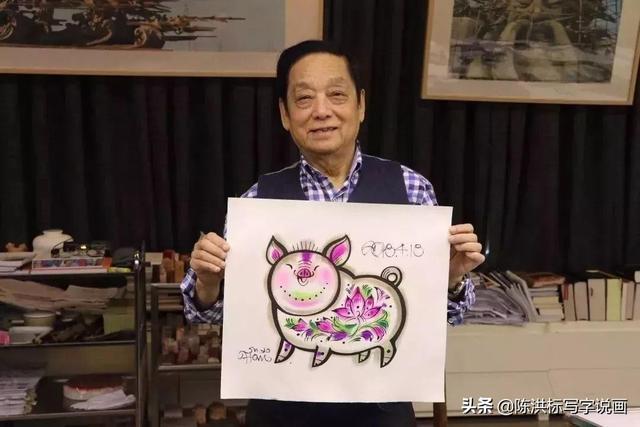 2018.4.18
头条 @陈洪标写字说画